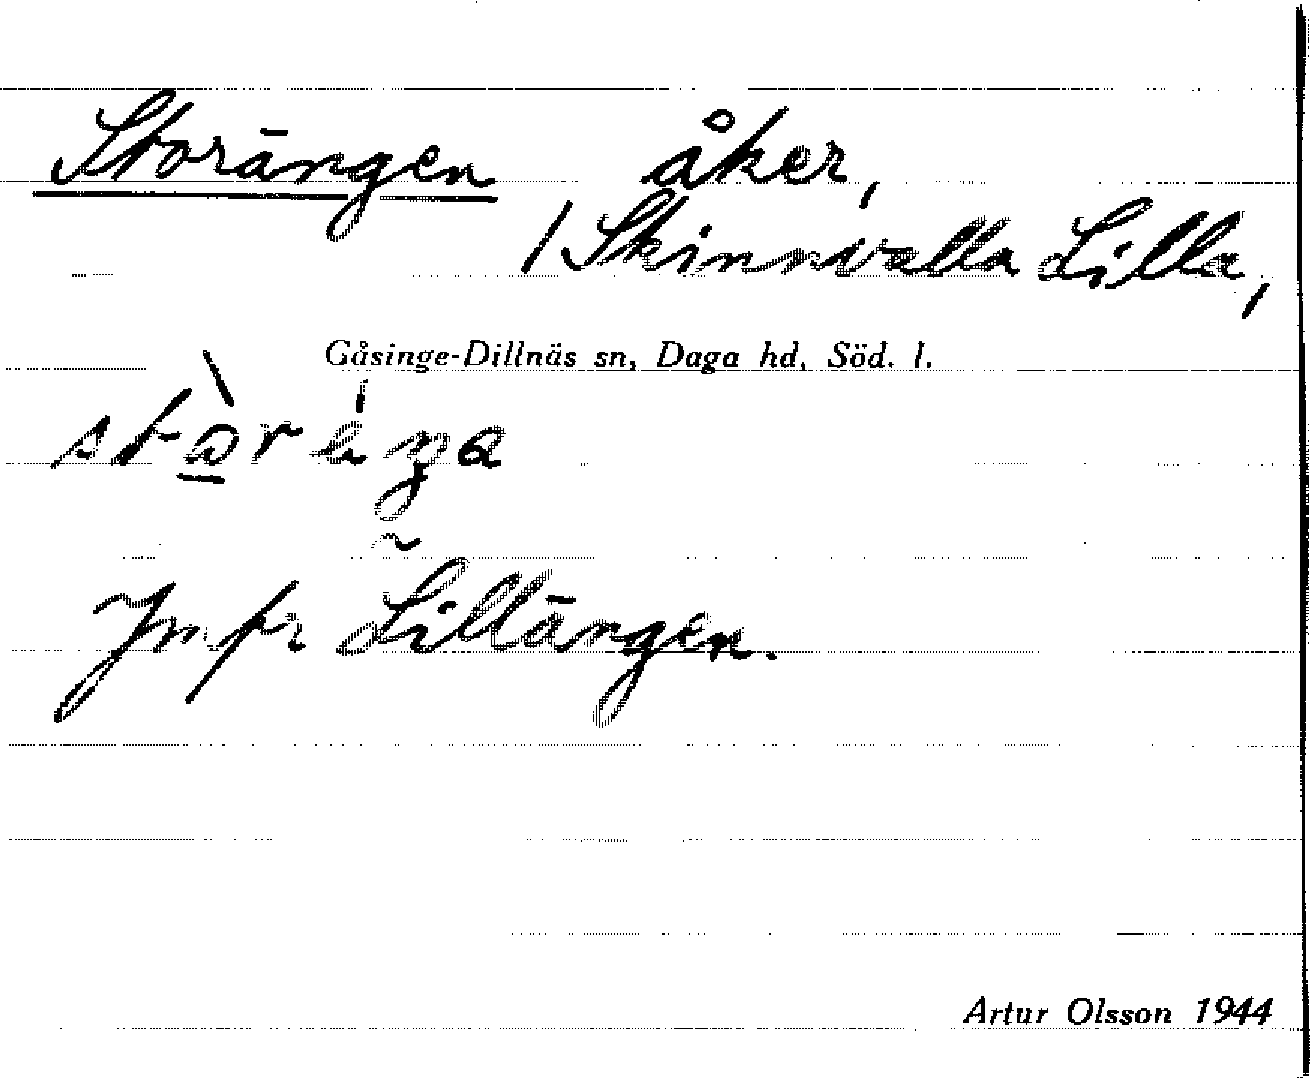 Storängen åker,
/ Skinnvalla Lilla,
Gåsinge-Dillnäs sn, Daga hd, Söd. l.
Jmfr Lillängen.
Artur Olsson 1944